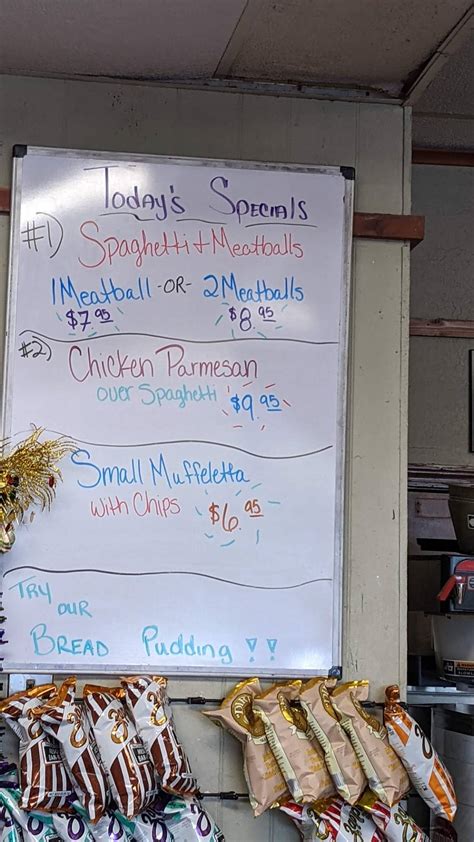 Today's Specials
#1) Spaghetti + Meatballs
1 Meatball -OR- 2 Meatballs
$7.95 $8.95
#2) Chicken Parmesan
over Spaghetti $9.95
Small Muffeletta
with Chips $6.95
TRY
OUR
BREAD Pudding !!